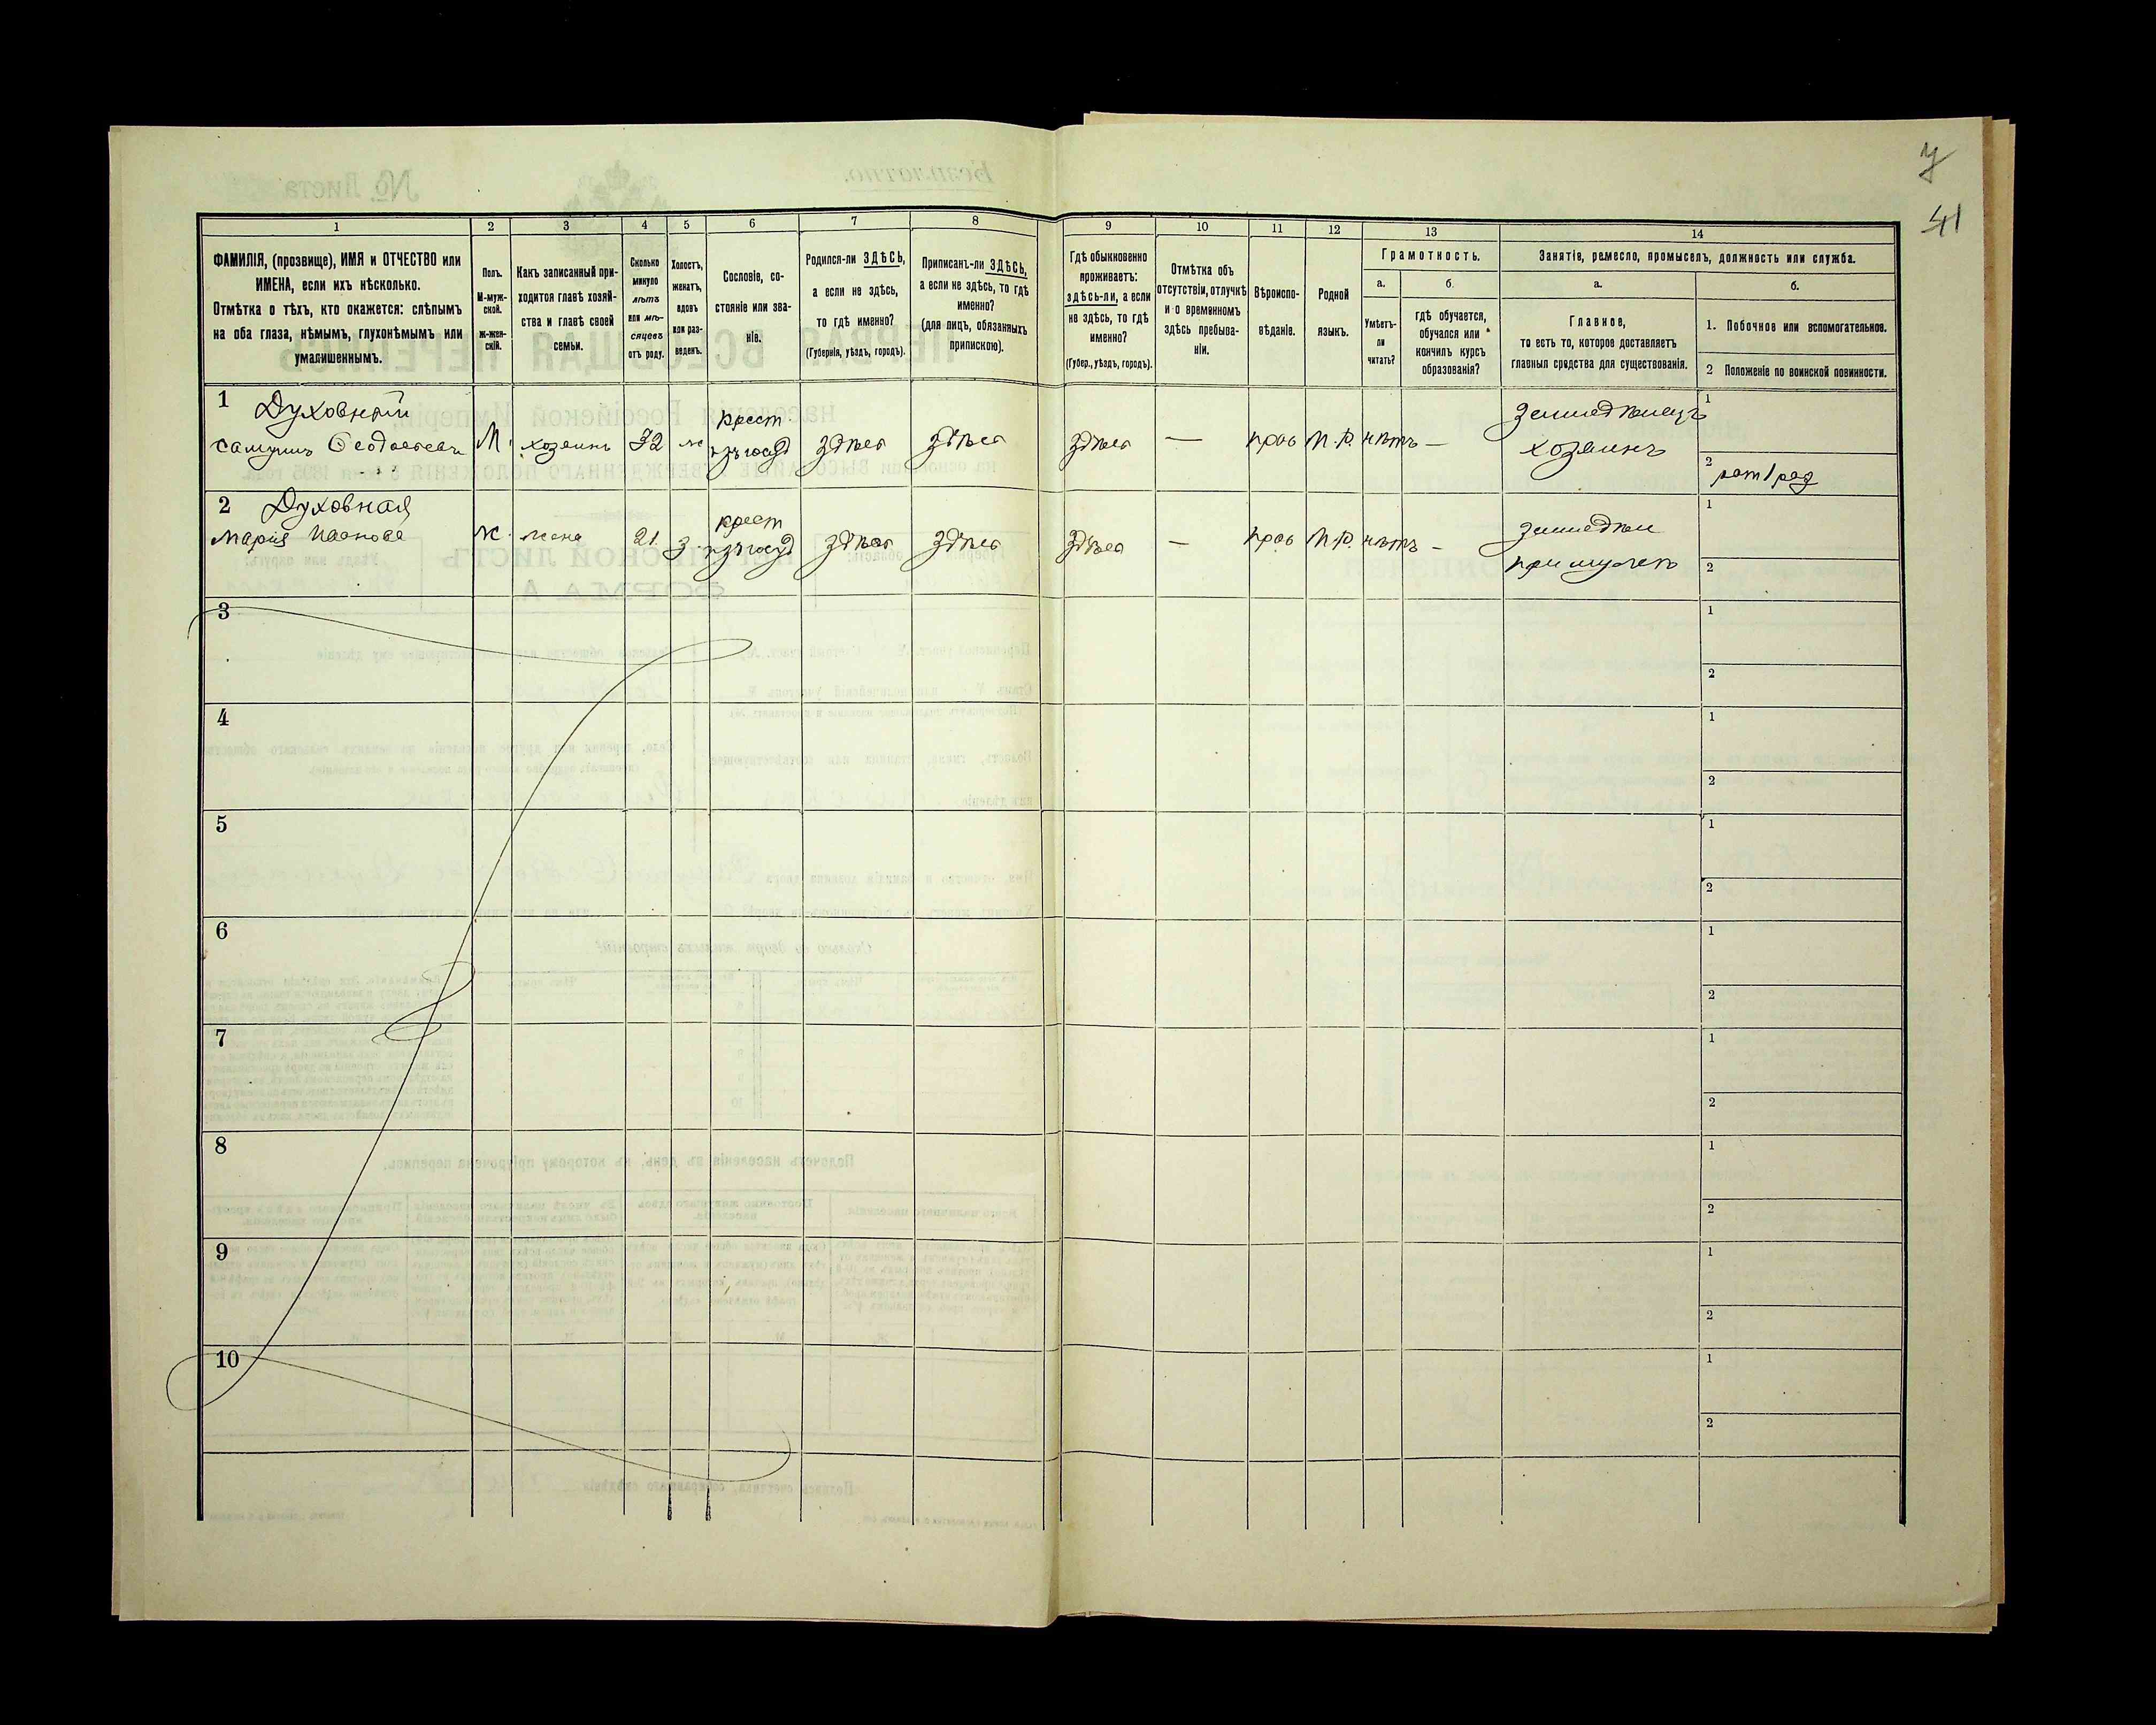 7
41
1
2
3
4
5
6
7
8
9
10
11
12
13
14
ФАМИЛІЯ, (прозвище), ИМЯ и ОТЧЕСТВО или
ИМЕНА, если ихъ нѣсколько.
Отмѣтка о тѣхъ, кто окажется: слѣпымъ
на оба глаза, нѣмымъ, глухонѣмымъ или
умалишеннымъ.
Полъ.
М-муж-
ской.
Ж-жен-
скій.
Какъ записанный при-
ходится главѣ хозяй-
ства и главѣ своей
семьи.
Сколько
минуло
лѣтъ
или мѣ-
сяцевъ
отъ роду.
Холостъ,
женатъ,
вдовъ
или раз-
веденъ.
Сословіе, со-
стояніе или зва-
ніе.
Родился-ли ЗДѢСЬ,
а если не здѣсь,
то гдѣ именно?
(Губернія, уѣздъ, городъ).
Приписанъ-ли ЗДѢСЬ,
а если не здѣсь, то гдѣ
именно?
(для лицъ, обязанныхъ
припискою).
Гдѣ обыкновенно
проживаетъ:
здѣсь-ли, а если
не здѣсь, то гдѣ
именно?
(Губер., уѣздъ, городъ).
Отмѣтка объ
отсутствіи, отлучкѣ
и о временномъ
здѣсь пребыва-
ніи.
Вѣроиспо-
вѣданіе.
Родной
языкъ.
Грамотность.
а.
Умѣетъ-
ли
читать?
б.
гдѣ обучается,
обучался или
кончилъ курсъ
образованія?
Занятіе, ремесло, промыселъ, должность или служба.
а.
Главное,
то есть то, которое доставляетъ
главныя средства для существованія.
б.
1. Побочное или вспомогательное.
2 Положеніе по воинской повинности.
1 Духовный
Самуилъ
М. хозяинъ 32 ж
крест
изъ госуд
здѣсь здѣсь здѣсь — прав М.Р. нѣтъ —
хозяинъ
1
2 рат 1 раз
2 Духовная
Марія Иванова
Ж. жена 21 з
крест
изъ госуд
здѣсь здѣсь здѣсь — прав М.Р. нѣтъ —
при мужѣ
1
2
3
1
2
4
1
2
5
1
2
6
1
2
7
1
2
8
1
2
9
1
2
10
1
2